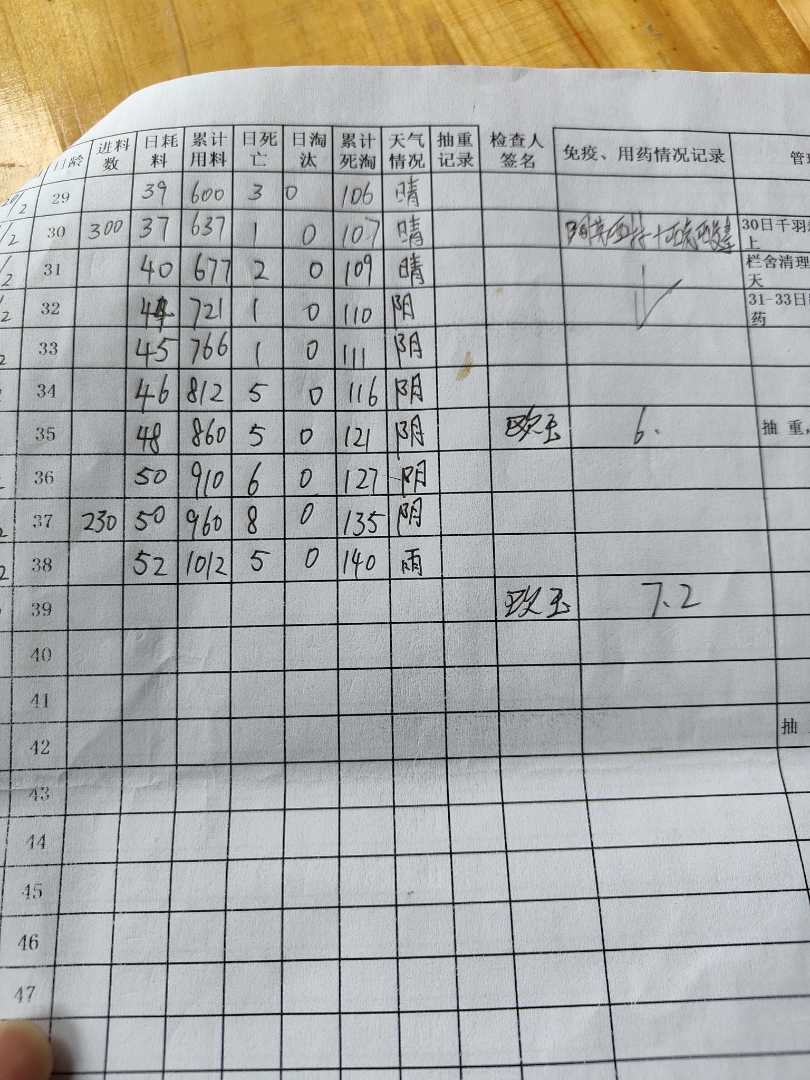 日龄 进料数 日耗料 累计用料 日死亡 日淘汰 累计死淘 天气情况 抽重记录 检查人签名 免疫、用药情况记录 管
29 39 600 3 0 106 晴
30 300 37 637 1 0 107 晴 30日千羽 上
31 40 677 2 0 109 晴 栏舍清理 天
32 44 721 1 0 110 阴 31-33日 药
33 45 766 1 0 111 阴
34 46 812 5 0 116 阴
35 48 860 5 0 121 阴 6. 抽重,
36 50 910 6 0 127 阴
37 230 50 960 8 0 135 阴
38 52 1012 5 0 140 雨
39 7.2
40
41
42 抽
43
44
45
46
47